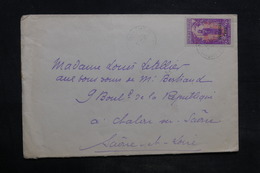 Madame Louis Letellier
aux bons soins de Mr. Bertrand
9 Boul. de la République
à Chalon sur Saône
Saône-et-Loire